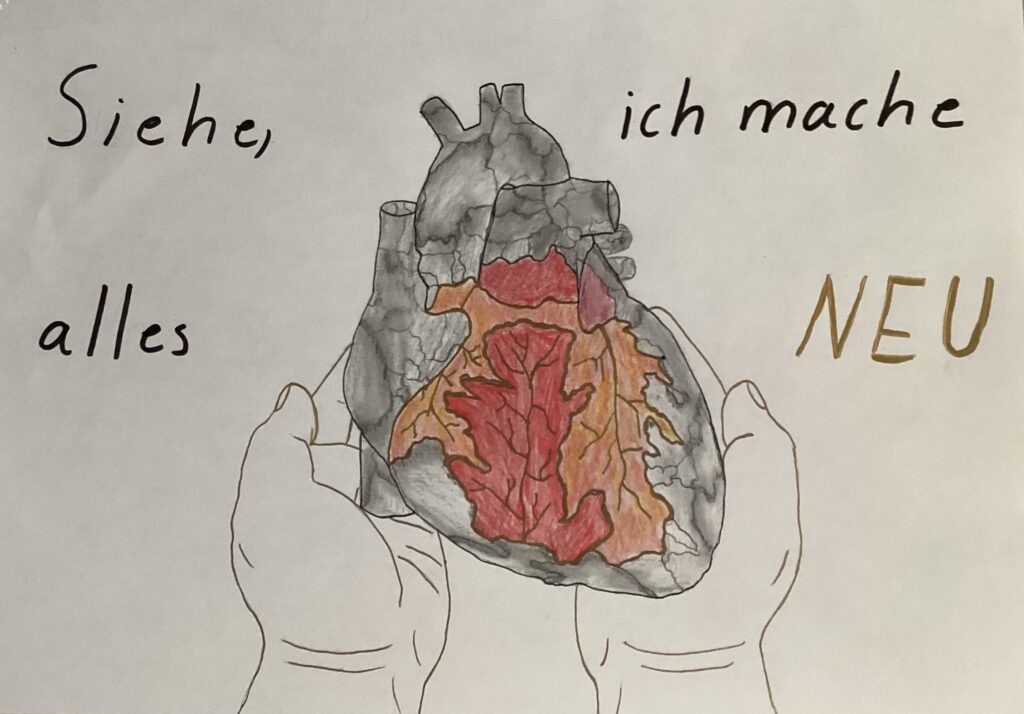 Siehe, ich mache
alles NEU